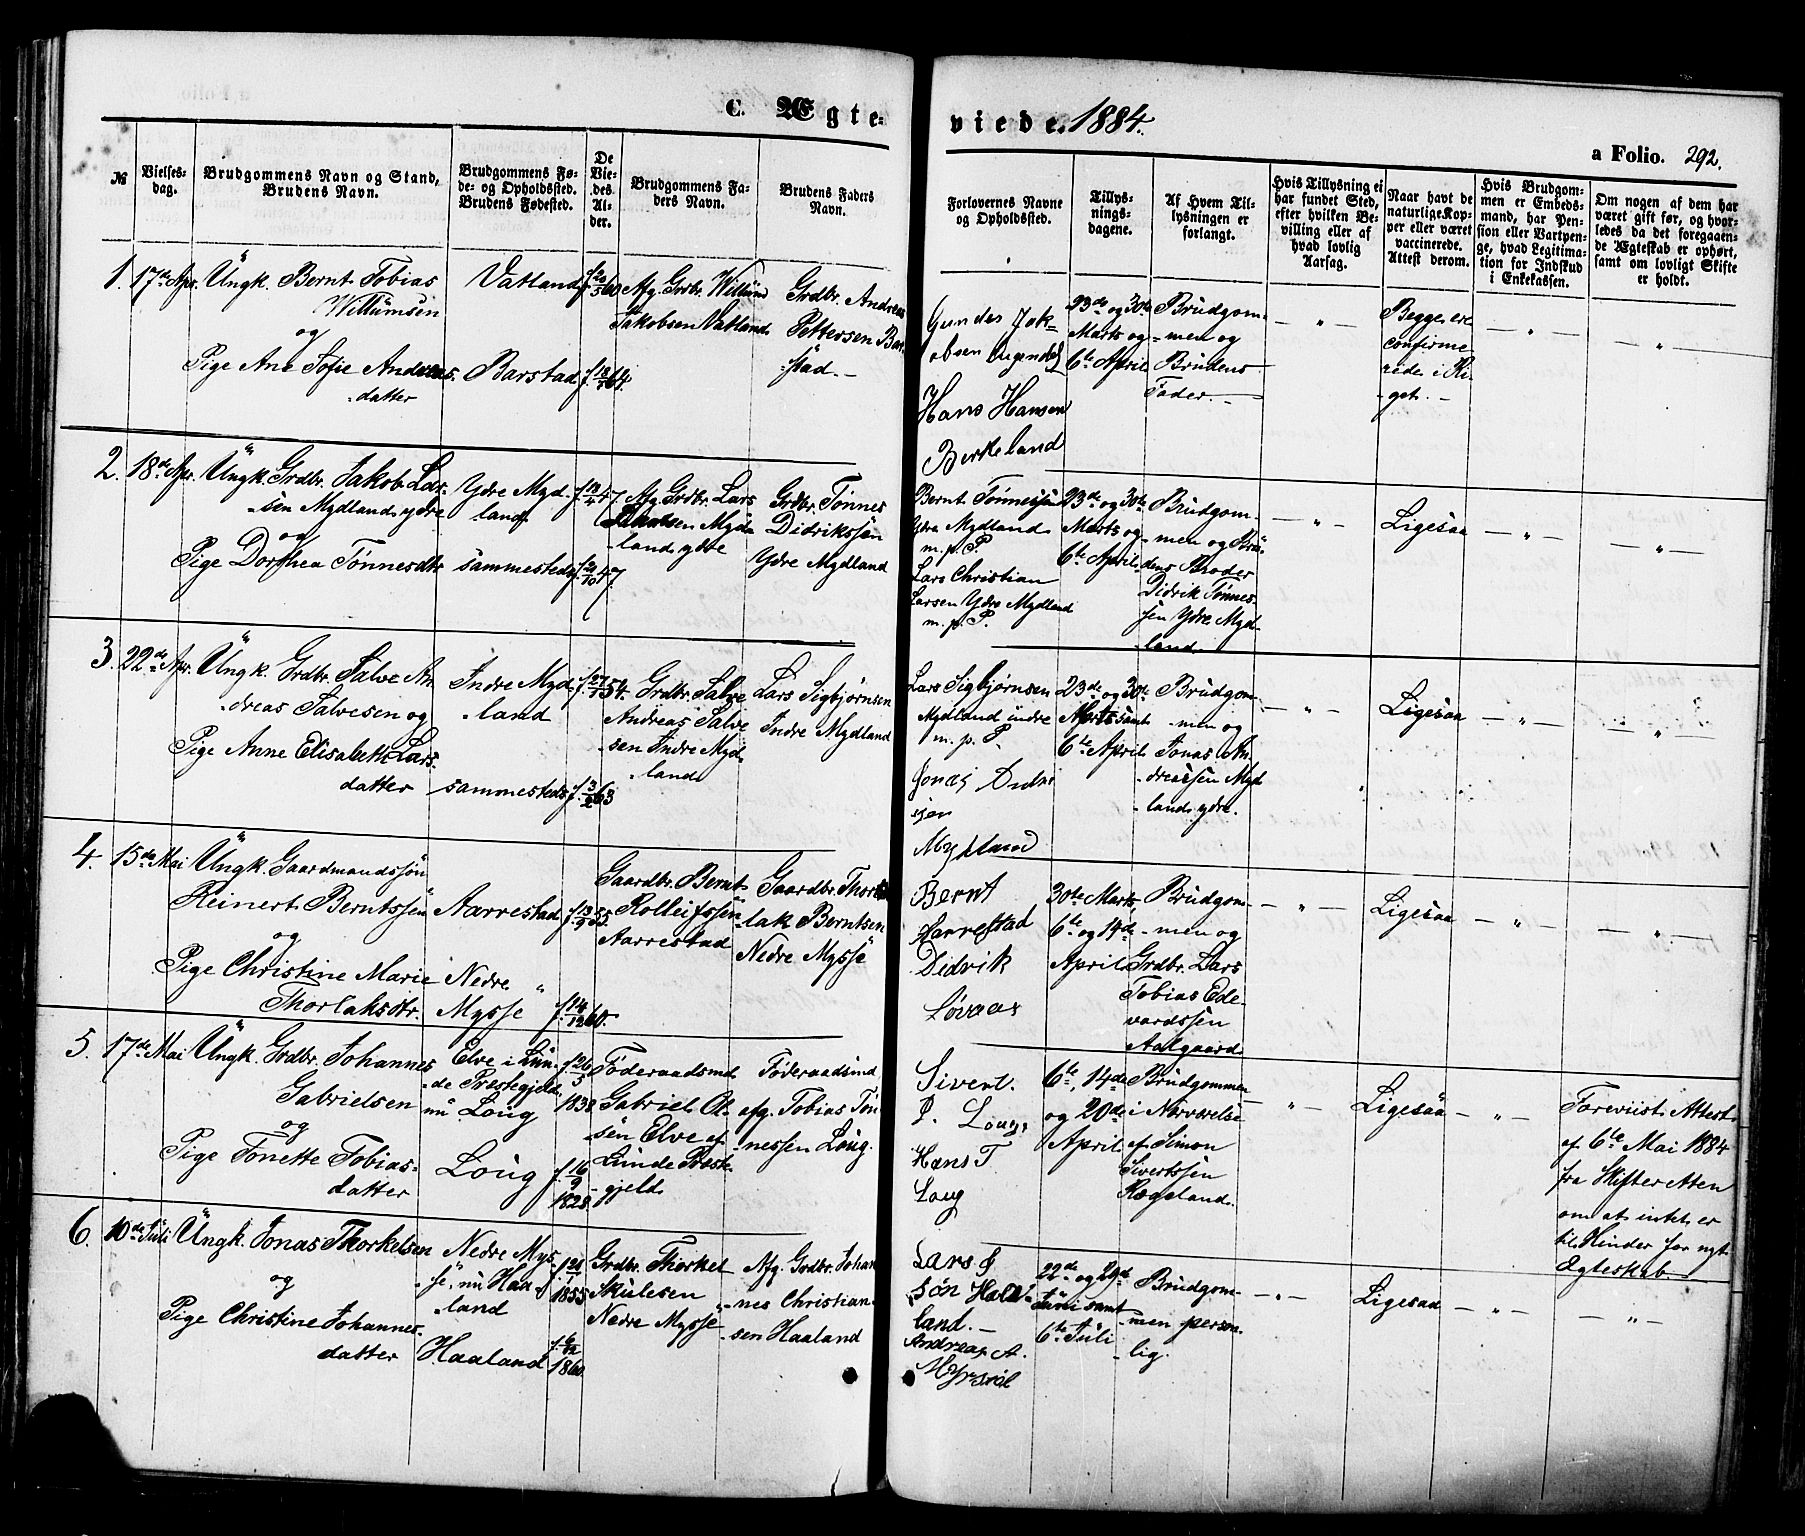 C. Ægte-
viede. 1884.
a Folio. 292.
№
Vielses-
dag.
Brudgommens Navn og Stand,
Brudens Navn.
Brudgommens Fø-
de- og Opholdssted.
Brudens Fødested.
De
Vie-
des
Al-
der.
Brudgommens Fa-
ders Navn.
Brudens Faders
Navn.
Forlovernes Navne
og Opholdssted.
Tillys-
nings-
dagene.
Af Hvem Til-
lysningen er
forlangt.
Hvis Tillysning ei
har fundet Sted,
efter hvilken Be-
villing eller af
hvad lovlig
Aarsag.
Naar havt de
naturlige Kop-
per eller været
vaccinerede.
Attest derom.
Hvis Brudgom-
men er Embeds-
mand, har Pen-
sion eller Vartpen-
ge, hvad Legitima-
tion for Indskud
i Enkekassen.
Om nogen af dem har
været gift før, og hvor-
ledes da det foregaaen-
de Ægteskab er ophørt,
samt om lovligt Skifte
er holdt.
1. 17de Apr.
Ungk. Bernt Tobias
Willumsen
og
Pige Ane Sofie Andreas-
datter
Vatland
Barstad
Afg. Grdbr. Willum
Jakobsen Vatland
Grdbr. Andreas
Pettersen Bar-
stad.
Gunder Jak-
obsen
Hans Hansen
Berkeland
23de og 30te
Marts og
6te April
Brudgom-
men og
Brudens
Fader.
Begge ere
confirme-
rede i Ri-
get.
2. 18de Apr.
Ungk. Grdbr. Jakob Lar-
sen Mydland ydre
og
Pige Dorthea Tønnesdtr.
Ydre Myd-
land
sammesteds
f. 18/4 47
f. 21/10 47.
Afg. Grdbr. Lars
Jakobsen Myd-
land ydre
Grdbr. Tønnes
Didriksen
Ydre Mydland
Bernt Tønnessen
Ydre Mydland
m. p. P.
Lars Christian
Larsen Ydre Mydland
m. p. P.
23de og 30te
Marts og
6te April
Brudgom-
men og Bru-
dens Broder
Didrik Tønnes-
sen Ydre Myd-
land.
Ligesaa
3. 22de Apr.
Ungk. Grdbr. Salve An-
dreas Salvesen og
Pige Anne Elisabeth Lars-
datter
Indre Myd-
land
sammesteds
f. 3/2 63
Grdbr. Salve
Andreas Salve-
sen Indre Myd-
land
Lars Sigbjørnsen
Indre Mydland
Lars Sigbjørnsen
Mydland indre
m. p. P.
Jonas
Mydland
23de og 30te
Marts samt
6te April
Brudgom-
men og
Jonas An-
dreassen Myd-
land ydre.
Ligesaa
4. 15de Mai
Ungk. Gaardmandssøn
Reinert Berntssen
og
Pige Christine Marie
Thorlaksdtr.
Aarrestad
Nedre
Mysse
f. 13/9 55.
f. 14/12 60.
Gaardbr. Bernt
Rolleifssen
Aarrestad
Gaardbr. Thor-
lak Berntsen
Nedre Mysse
Bernt
Harrestad
Didrik
Løvaas
30te Marts
6te og 14de
April
Brudgom-
men og
Grdbr. Lars
Tobias Ede-
vardssen
Aalgaard.
Ligesaa
5. 17de Mai
Ungk. Grdbr. Johannes
Gabrielsen
og
Pige Tonette Tobias-
datter
Elve i Lun-
de Præstegjeld
nu Loug
Loug
f. 26/5
1838
f. 16/9
1828
Føderaadsmd
Gabriel Ol-
sen Elve af
Lunde Præste-
gjeld
Føderaadsmd
afg. Tobias Tøn-
nessen Loug.
Sivert
P. Loug
Hans T
Loug
6te, 14de
og 20de
April
Brudgommen
i Nærværelse
af Simon
Sivertssen
Rægeland.
Ligesaa
Foreviist Attest
af 6te Mai 1884
fra Skifteretten
om at intet er
til Hinder for nyt
Ægteskab.
6. 10de Juli
Ungk. Jonas Thorkelsen
og
Pige Christine Johannes-
datter
Nedre Mys-
se, nu Haa-
land
Haaland
1855
f. 6/12
1860.
Grdbr. Thorkel
Skulesen
Nedre Mysse
Afg. Grdbr. Johan-
nes Christian-
sen Haaland
Lars
søn Haa-
land.
Andreas A.
22de og 29de
Juni samt
6te Juli
Brudgom-
men person-
lig.
Ligesaa